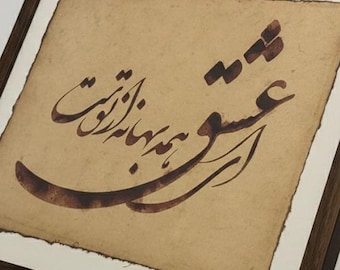 ای عشق همه بهانه از توست